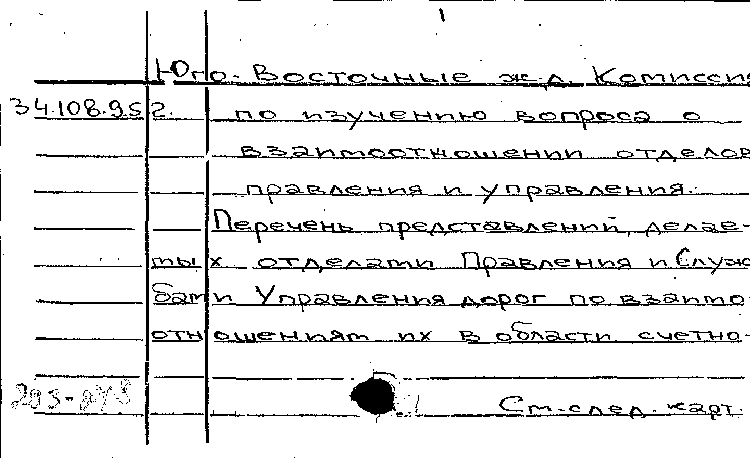 1
Юго-Восточные ж.д. Комиссия
34.108.95 г. по изучению вопроса о
взаимоотношении отделов
правления и управления.
Перечень представлений, делае-
мых отделами Правления и Служ
бами Управления дорог по взаимо
отношениям их в области счетно-
См. след. карт.